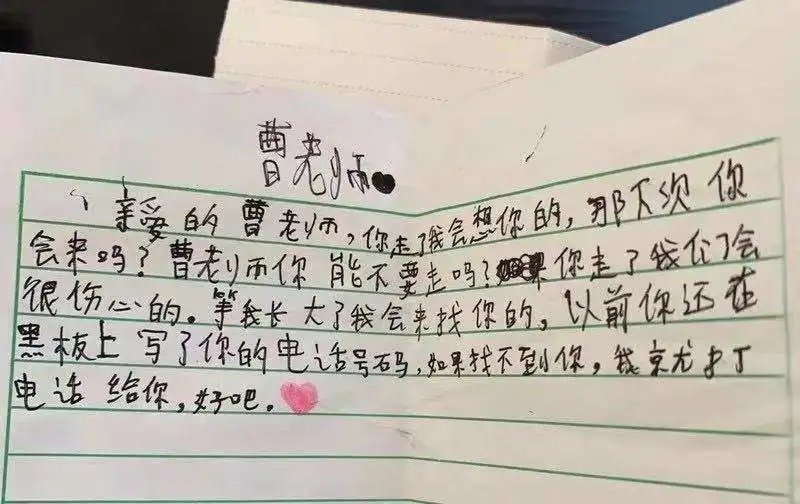 曹老师
亲爱的曹老师,你走了我会想你的,那下次你
会来吗?曹老师你能不要走吗?如果你走了我们会
很伤心的。等我长大了我会来找你的,以前你还在
黑板上写了你的电话号码,如果找不到你,我就打
电话给你,好吧。